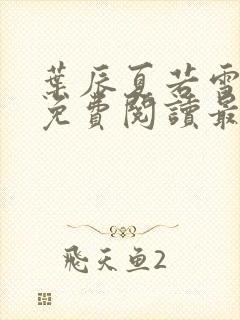 葉辰夏若雪
免費閱讀最
飛天鱼2